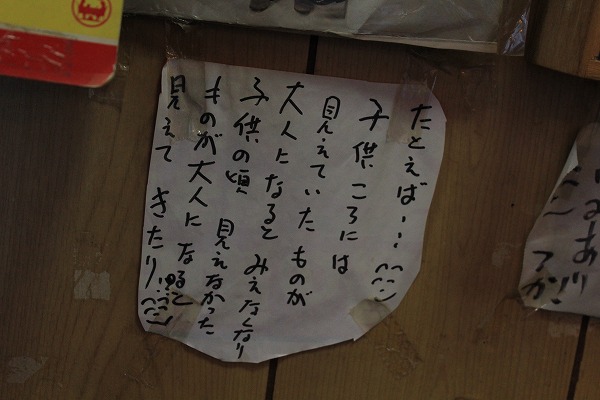 たとえば…
子供ころには
見えていたものが
大人になると みえなくなり
子供の頃 見えなかった
ものが大人になると
見えて きたり…